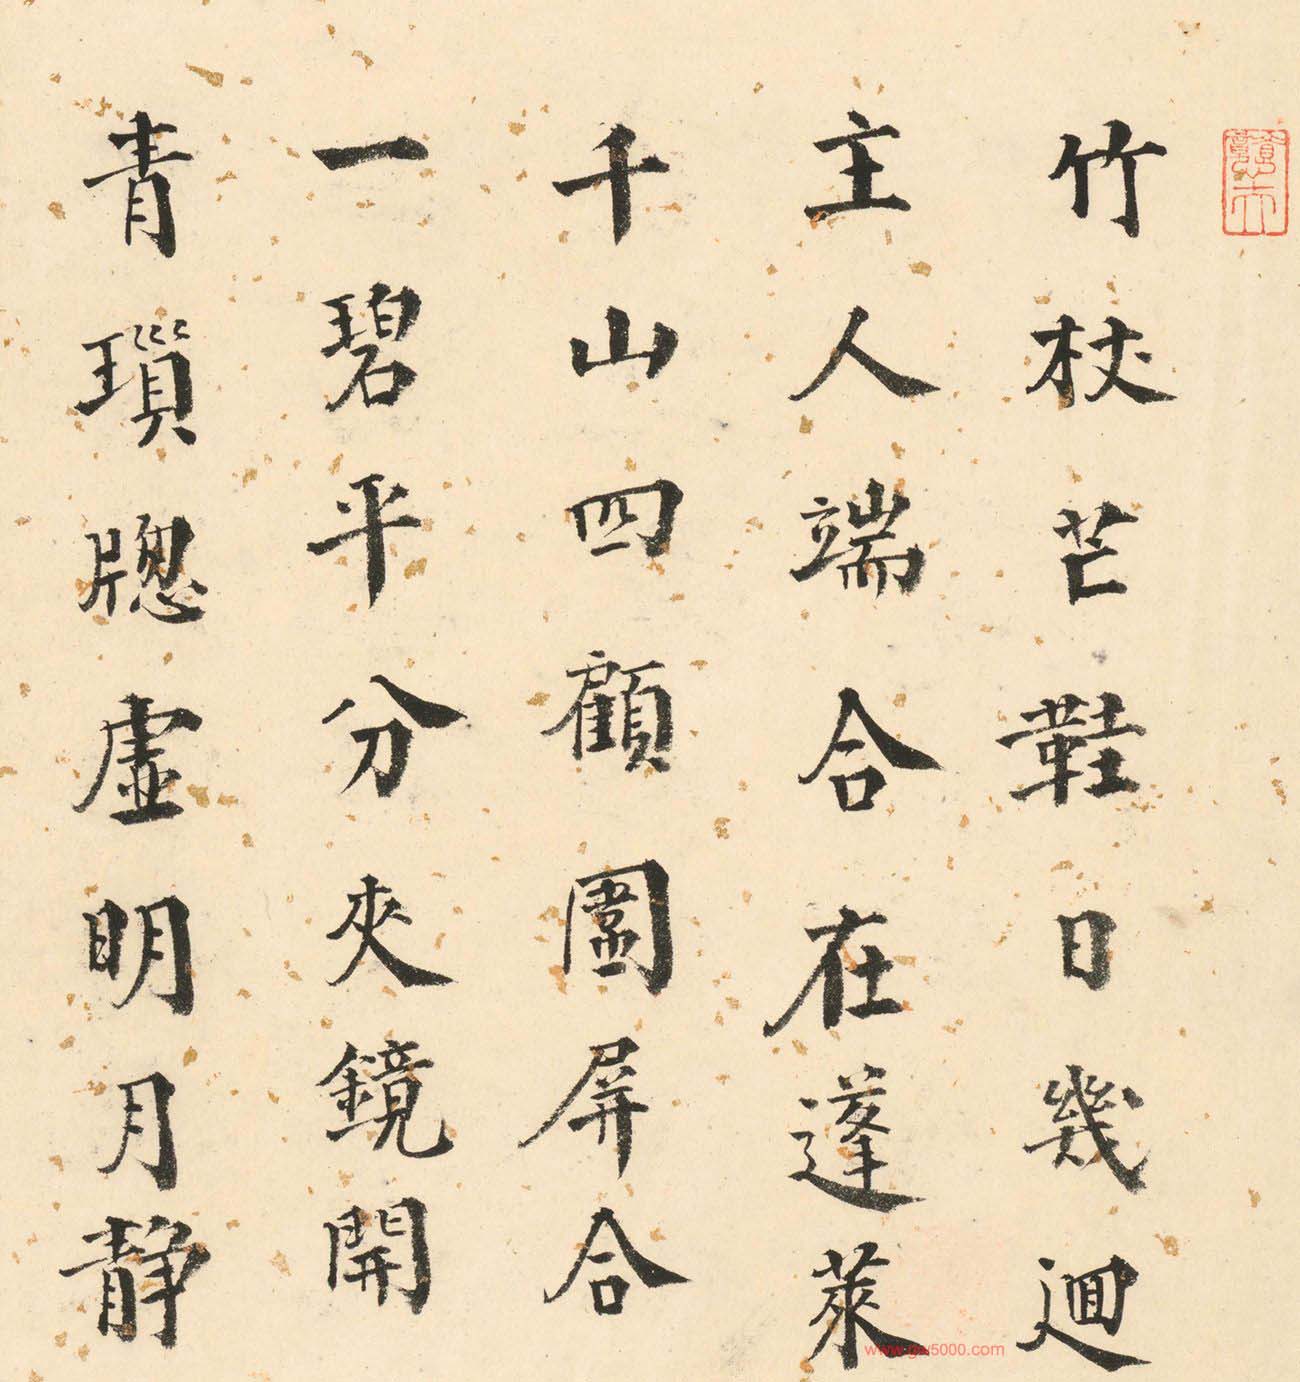 竹杖芒鞵日幾迴
主人端合在蓬萊
千山四顧圍屏合
一碧平分夾鏡開
青瑣牕虛明月靜
www.gtw5000.com